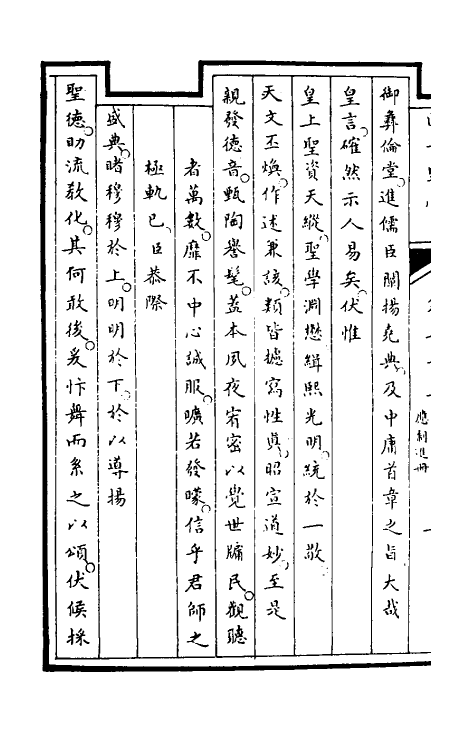 應制進冊
御彞倫堂進儒臣闡揚堯典及中庸首章之旨大哉
皇言確然示人易矣伏惟
皇上聖資天縱聖學淵懋緝熙光明統於一敬
天文丕煥作述兼該類皆攄寫性真昭宣道妙至是
親發德音甄陶譽髦蓋本夙夜宥密以覺世牖民觀聽
者萬數靡不中心誠服曠若發矇信乎君師之
極軌已臣恭際
盛典睹穆穆於上明明於下於以導揚
聖德助流教化其何敢後爰忭舞而系之以頌伏候採